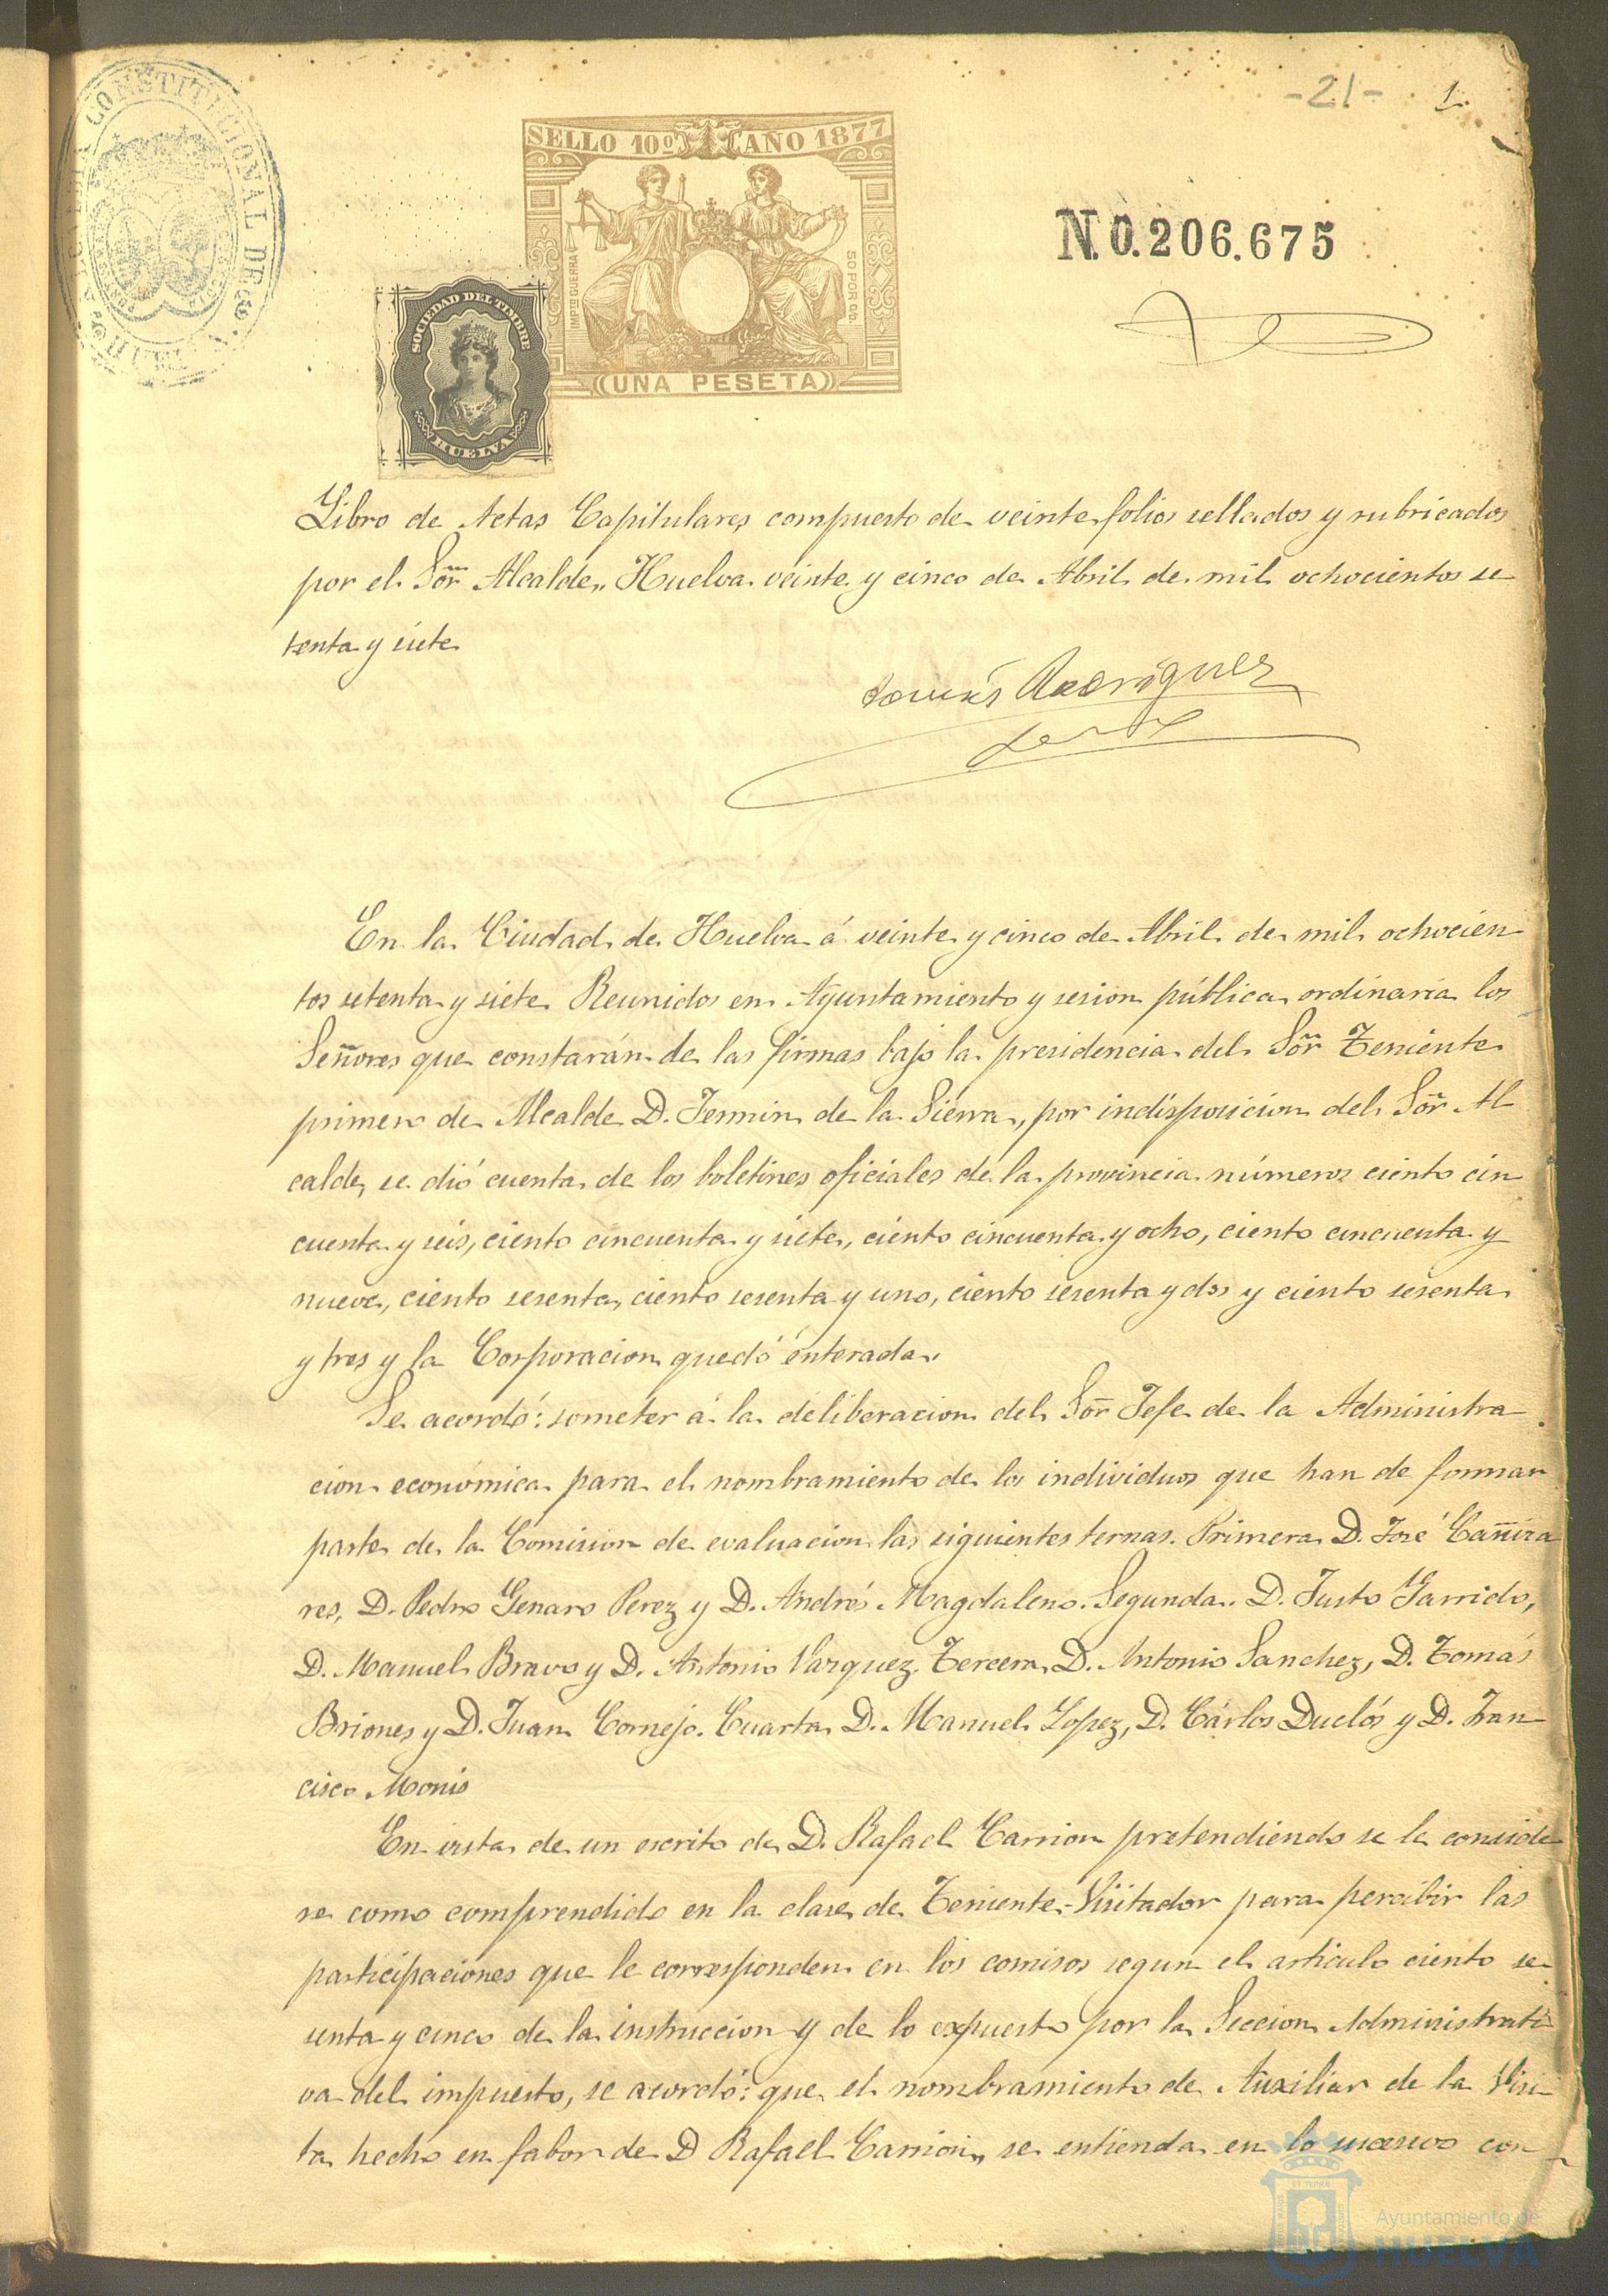 -21- 1.
ALCALDIA CONSTITUCIONAL DE HUELVA
SELLO 10º AÑO 1877
IMPTO GUERRA
50 POR CTO.
UNA PESETA
N.0.206.675
SOCIEDAD DEL TIMBRE
HUELVA
Libro de Actas Capitulares, compuesto de veinte folios sellados y rubricados
por el Sor. Alcalde,, Huelva veinte y cinco de Abril de mil ochocientos se-
tenta y siete
Tomás Rodriguez
En la Ciudad de Huelva á veinte y cinco de Abril de mil ochocien-
tos setenta y siete Reunidos en Ayuntamiento y sesion pública ordinaria los
Señores que constarán de las firmas bajo la presidencia del Sor Teniente
primero de Alcalde D. Fermin de la Sierra, por indisposicion del Sor Al-
calde, se dió cuenta de los boletines oficiales de la provincia números ciento cin-
cuenta y seis, ciento cincuenta y siete, ciento cincuenta y ocho, ciento cincuenta y
nueve, ciento sesenta, ciento sesenta y uno, ciento sesenta y dos y ciento sesenta
y tres y la Corporacion quedó enterada.
Se acordó: someter á la deliberacion del Sor Jefe de la Administra-
cion económica para el nombramiento de los individuos que han de formar
parte de la Comision de evaluacion las siguientes ternas. Primera D. José Cañiza-
res, D. Pedro Genaro Perez y D. Andrés Magdaleno. Segunda. D. Justo Garrido,
D. Manuel Bravo y D. Antonio Vazquez. Tercera, D. Antonio Sanchez, D. Tomás
Briones y D. Juan Cornejo. Cuarta D. Manuel Lopez, D. Cárlos Duclós y D. Fran-
cisco Monis
En vista de un escrito de D. Rafael Carrion pretendiendo se le conside-
re como comprendido en la clase de Teniente-Visitador para percibir las
participaciones que le corresponden en los comisos segun el articulo ciento se-
senta y cinco de la instruccion y de lo expuesto por la Seccion Administrati-
va del impuesto, se acordó: que el nombramiento de Auxiliar de la Visi-
ta hecho en fabor de D Rafael Carrion, se entienda en lo sucesivo con-
Ayuntamiento de
HUELVA